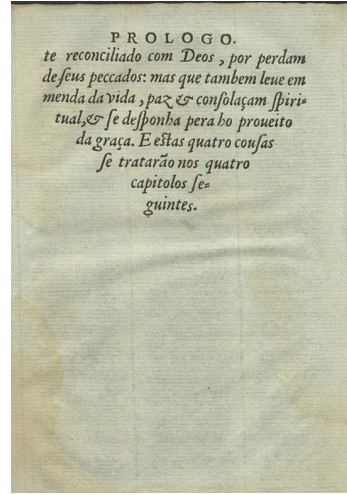 PROLOGO.
te reconciliado com Deos, por perdam
de ſeus peccados: mas que tambem leue em
menda da vida, paz & conſolaçam ſpiri-
tual, & ſe deſponha pera ho proueito
da graça. E eſtas quatro couſas
ſe tratarão nos quatro
capitolos ſe-
guintes.